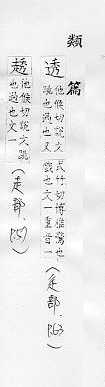 類篇
透 他候切說文
跳也過也又
式竹切博雅驚也
戲也文一重音一(辵部, P63)
他候切說文跳
也過也文一(走部,